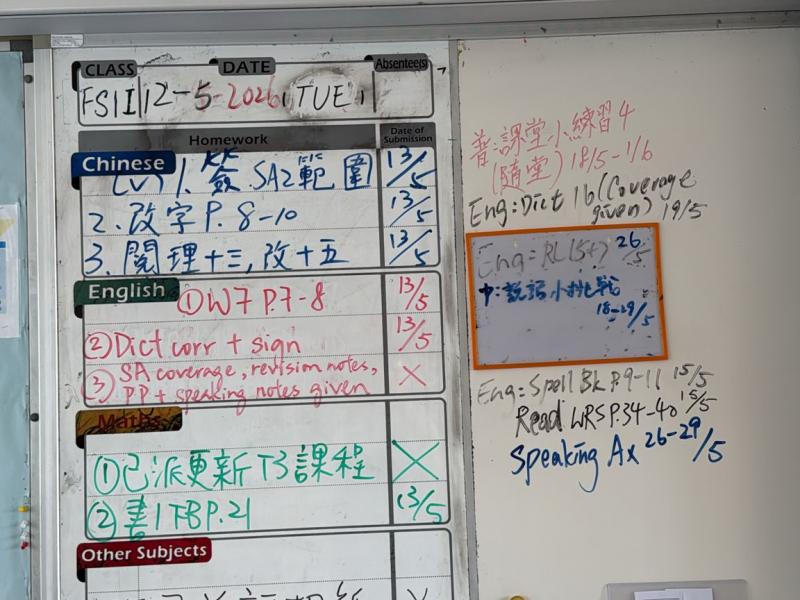 CLASS DATE Absentee(s)
12-5-2026, TUE,
Homework Date of Submission
Chinese
1. 簽 SA2 範圍 13/5
2. 改字 P. 8-10 13/5
3. 閱理十三, 改十五 13/5
English
① W7 P.7-8 13/5
② Dict corr + sign 13/5
③ SA coverage, revision notes, X
PP + speaking notes given
Maths
① 已派更新 T3 課程 X
② 書1TB P.21 13/5
Other Subjects
普: 課堂小練習 4
(隨堂) 18/5-1/6
Eng: Dict 16 (Coverage
given) 19/5
Eng: RL 26/5
中: 說話小挑戰
18-29/5
Eng: Spell Bk P.9-11 15/5
Read WRS P.34-40 15/5
Speaking Ax 26-29/5